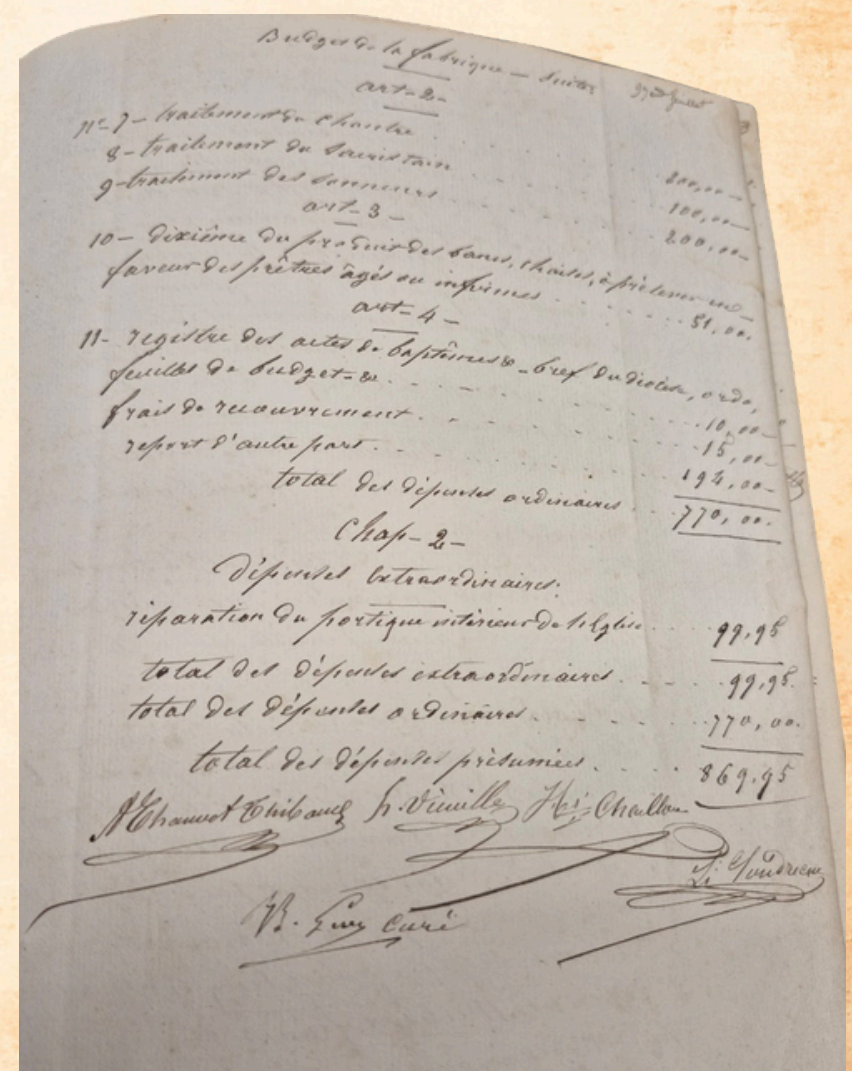 Budget de la fabrique — Suite
27ème feuillet
art-2-
Nos 7- traitement du Chantre . . . . 200,00-
8- traitement du Sacristain . . . . 100,00-
9- traitement des Sonneurs . . . . 200,00-
art-3-
10- dixième du produit des bancs, chaises, à prélever en
faveur des prêtres âgés ou infirmes . . . . 51,00.
art-4-
11- registre des actes de baptêmes & - bref du diocèse, ordo,
feuilles de budget-&. . . . 10,00-
frais de recouvrement . . . . 15,00-
report d'autre part . . . . 194,00-
total des dépenses ordinaires . . . . 770,00.
Chap-2-
Dépenses Extraordinaires.
réparation du portique intérieur de l'Eglise . . . . 99,95
total des dépenses extraordinaires . . . . 99,95.
total des dépenses ordinaires . . . . 770,00.
total des dépenses présumées . . . . 869,95
Thibaud h. Vieille Chaillou
curé